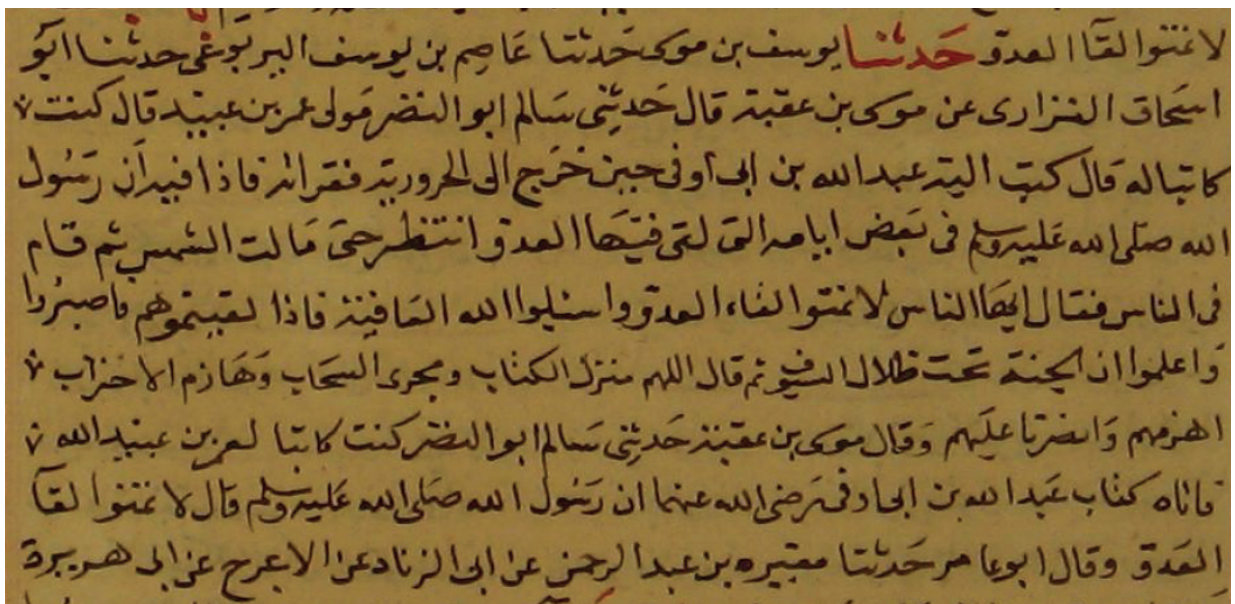 لا تمنوا لقآ العدو حدثنا يوسف بن موسى حدثنا عاصم بن يوسف اليربوعي حدثنا ابو
اسحاق الفزارى عن موسى بن عقبة قال حدثني سالم ابو النضر مولى عمر بن عبيد قال كنت
كاتبا له قال كتب اليه عبد الله بن ابى أوفى حين خرج الى الحرورية فقراته فاذا فيه أن رسول
الله صلى الله عليه وسلم فى بعض ايامه التى لقى فيها العدو انتظر حتى مالت الشمس ثم قام
فى الناس فقال ايها الناس لا تمنوا لقاء العدو واسئلوا الله العافية فاذا لقيتموهم فاصبروا
واعلموا ان الجنة تحت ظلال السيوف ثم قال اللهم منزل الكتاب ومجرى السحاب وهازم الاحزاب
اهزمهم وانصرنا عليهم وقال موسى بن عقبة حدثني سالم ابو النضر كنت كاتبا لعمر بن عبيد الله
فاتاه كتاب عبد الله بن ابى اوفى رضى الله عنهما ان رسول الله صلى الله عليه وسلم قال لا تمنوا لقآ
العدو وقال ابو عامر حدثنا مغيره بن عبد الرحمن عن ابى الزناد عن الاعرج عن ابى هريرة